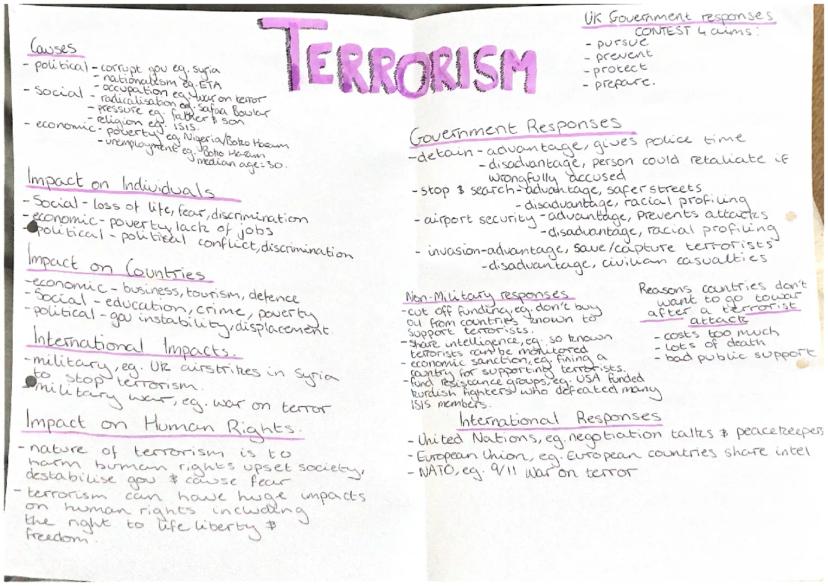 TERRORISM
Causes
- political - corrupt gov eg. Syria
- nationalism eg. ETA
- occupation eg. war on terror
- social - radicalisation eg. Safaa Boular
- pressure eg. father & son
- religion eg. ISIS.
- economic - poverty eg. Nigeria/Boko Haram
- unemployment eg. Boko Haram
median age = 30.
Impact on Individuals
- Social - loss of life, fear, discrimination
- economic - poverty, lack of jobs
- political - political conflict, discrimination
Impact on Countries
- economic - business, tourism, defence
- Social - education, crime, poverty
- political - gov instability, displacement
International Impacts.
- military, eg. UK airstrikes in Syria
to stop terrorism.
- military war, eg. war on terror
Impact on Human Rights.
- nature of terrorism is to
harm human rights upset society,
destabilise gov & cause fear
- terrorism can have huge impacts
on human rights including
the right to life liberty &
freedom.
UK Government responses
CONTEST 4 aims:
- pursue
- prevent
- protect
- prepare.
Government Responses
- detain - advantage, gives police time
- disadvantage, person could retaliate if
wrongfully accused
- stop & search - advantage, safer streets
- disadvantage, racial profiling
- airport security - advantage, Prevents attacks
- disadvantage, racial profiling
- invasion - advantage, save/capture terrorists
- disadvantage, civilian casualties
Non-Military responses
- cut off funding, eg. don't buy
oil from countries known to
support terrorists.
- share intelligence, eg. so known
terrorists can be monitored
- economic sanction, eg. fining a
country for supporting terrorists.
- fund resistance groups, eg. USA funded
kurdish fighters who defeated many
ISIS members.
Reasons countries don't
want to go to war
after a terrorist
attack
- costs too much
- lots of death
- bad public support
International Responses
- United Nations, eg. negotiation talks & peacekeepers
- European Union, eg. European countries share intel
- NATO, eg. 9/11 War on terror